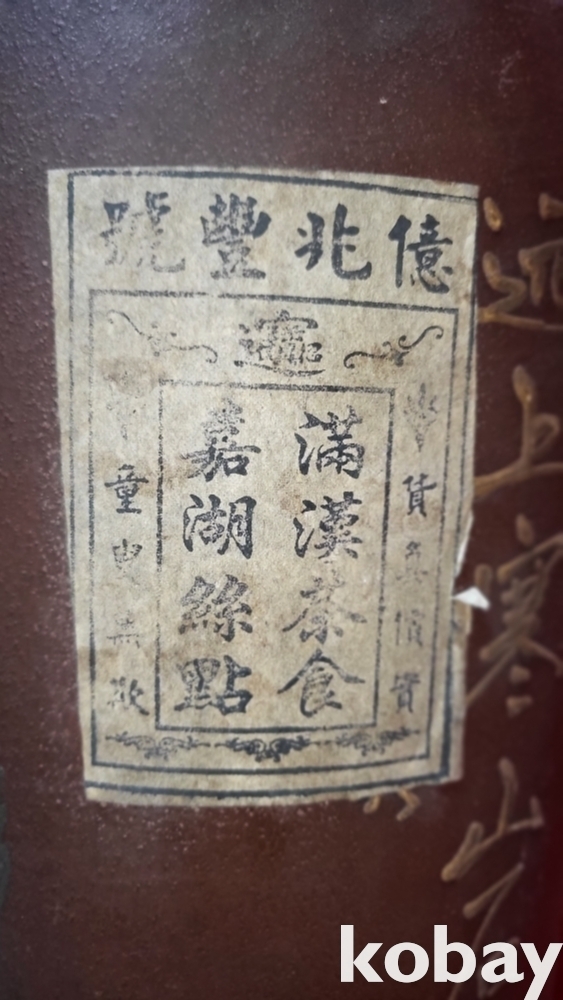 億兆豐號
貨真價實
滿漢茶食
嘉湖絲點
童叟無欺
遠上寒山
kobay